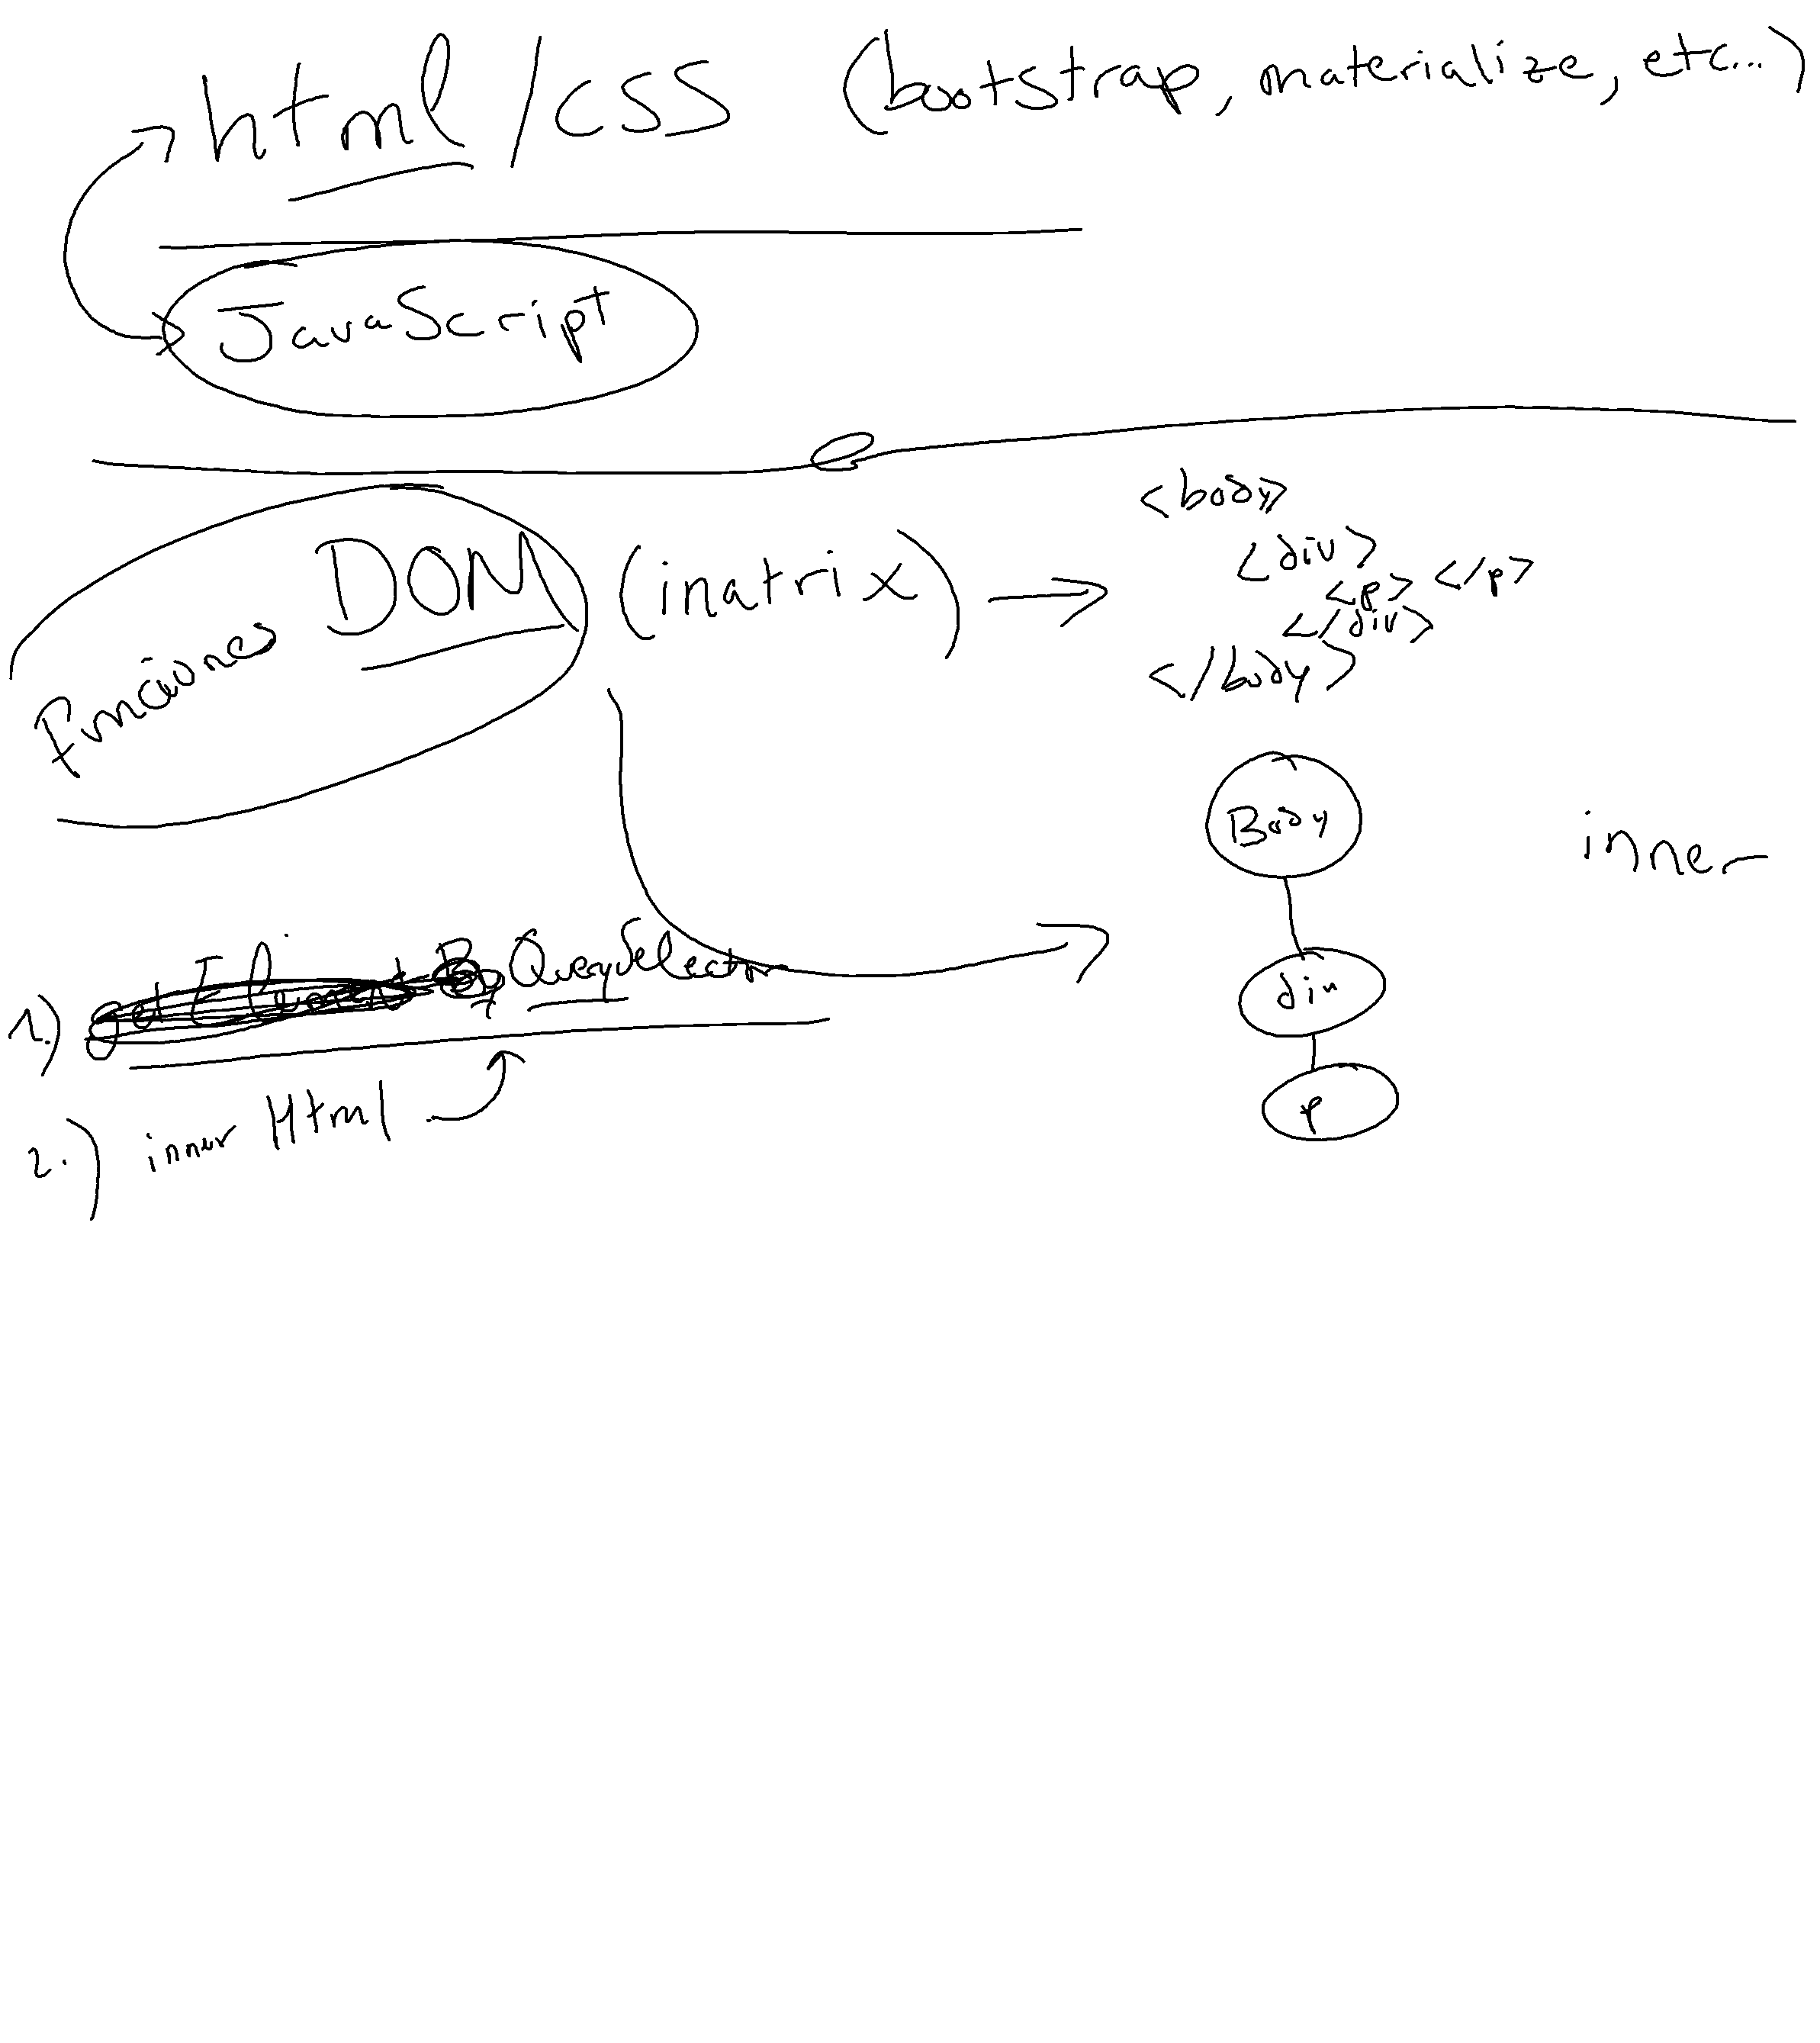 html/css (bootstrap, materialize, etc...)
JavaScript
Funciones DOM (inatrix)
<body>
<div>
<p> </p>
</div>
</body>
Body
inner
div
p
1.) get Element By QuerySelector
2.) inner Html